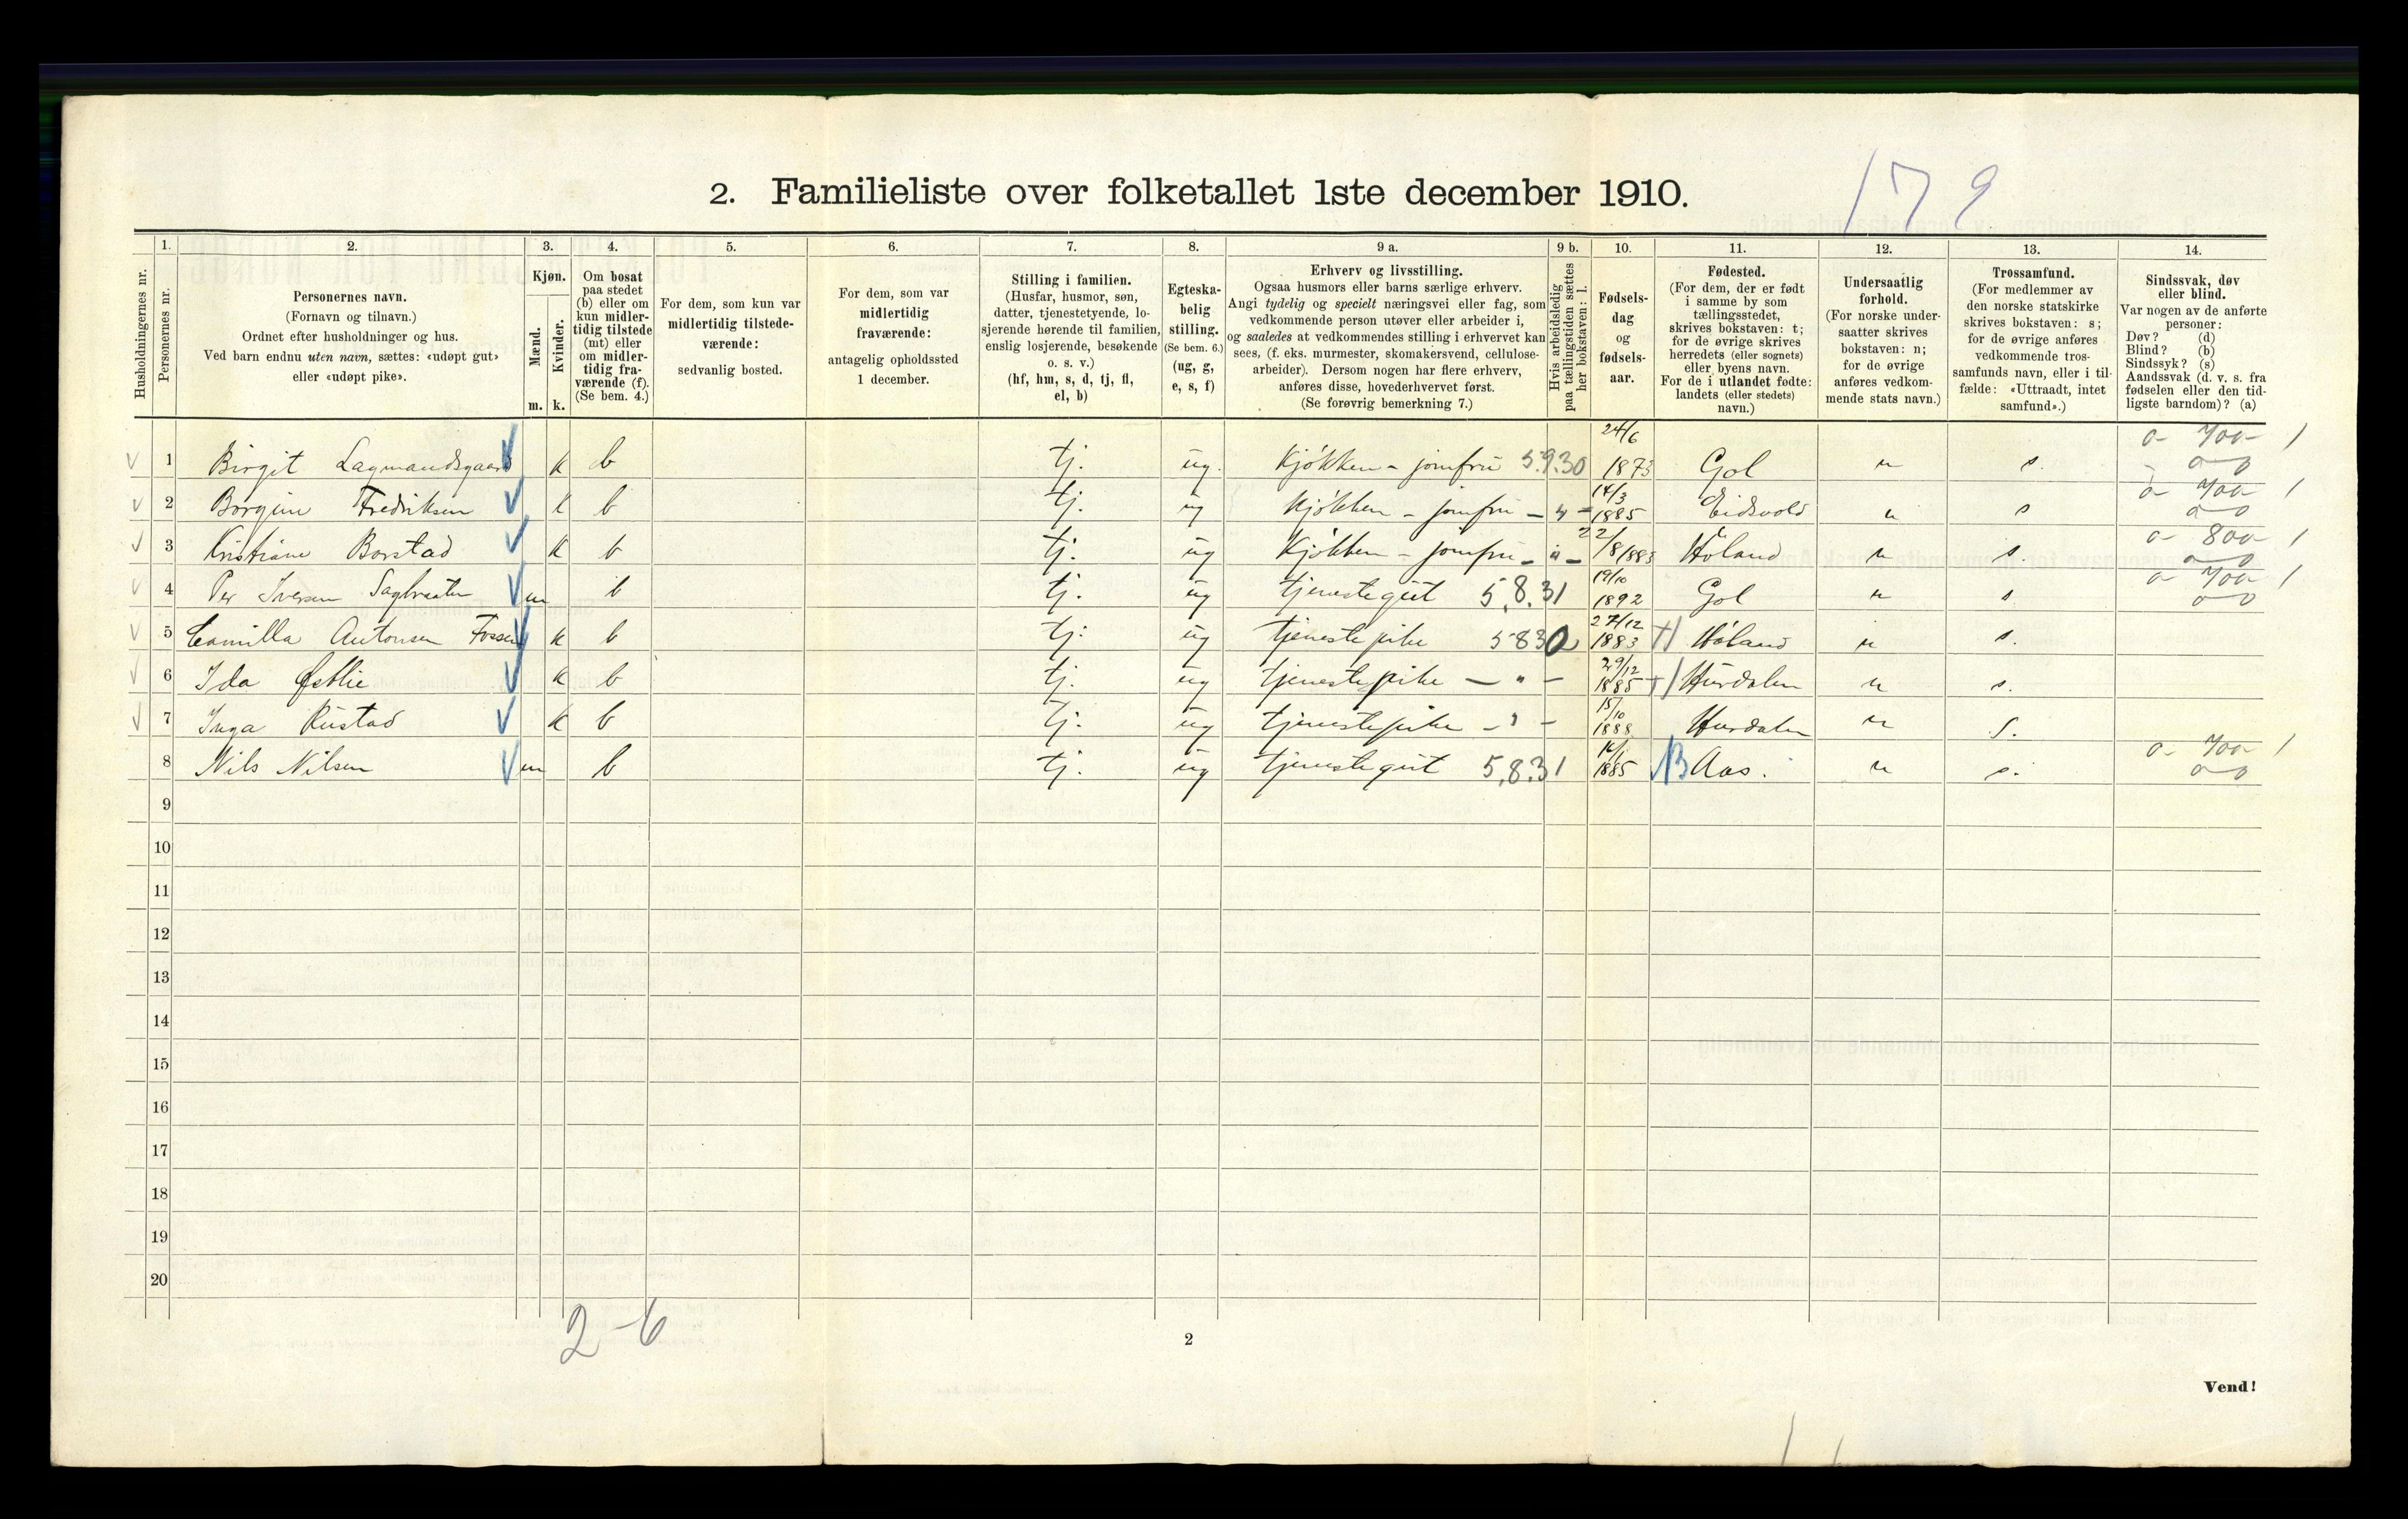 179
2. Familieliste over folketallet 1ste december 1910.
1. 2. 3. 4. 5. 6. 7. 8. 9 a. 9 b. 10. 11. 12. 13. 14.
Husholdningernes nr.
Personernes nr.
Personernes navn.
(Fornavn og tilnavn.)
Ordnet efter husholdninger og hus.
Ved barn endnu uten navn, sættes: «udøpt gut»
eller «udøpt pike».
Kjøn.
Mænd.
Kvinder.
m. k.
Om bosat
paa stedet
(b) eller om
kun midler-
tidig tilstede
(mt) eller
om midler-
tidig fra-
værende (f).
(Se bem. 4.)
For dem, som kun var
midlertidig tilstede-
værende:
sedvanlig bosted.
For dem, som var
midlertidig
fraværende:
antagelig opholdssted
1 december.
Stilling i familien.
(Husfar, husmor, søn,
datter, tjenestetyende, lo-
sjerende hørende til familien,
enslig losjerende, besøkende
o. s. v.)
(hf, hm, s, d, tj, fl,
el, b)
Egteska-
belig
stilling.
(Se bem. 6.)
(ug, g,
e, s, f)
Erhverv og livsstilling.
Ogsaa husmors eller barns særlige erhverv.
Angi tydelig og specielt næringsvei eller fag, som
vedkommende person utøver eller arbeider i,
og saaledes at vedkommendes stilling i erhvervet kan
sees, (f. eks. murmester, skomakersvend, cellulose-
arbeider). Dersom nogen har flere erhverv,
anføres disse, hovederhvervet først.
(Se forøvrig bemerkning 7.)
Hvis arbeidsledig
paa tællingstiden sættes
her bokstaven: l.
Fødsels-
dag
og
fødsels-
aar.
Fødested.
(For dem, der er født
i samme by som
tællingsstedet,
skrives bokstaven: t;
for de øvrige skrives
herredets (eller sognets)
eller byens navn.
For de i utlandet fødte:
landets (eller stedets)
navn.)
Undersaatlig
forhold.
(For norske under-
saatter skrives
bokstaven: n;
for de øvrige
anføres vedkom-
mende stats navn.)
Trossamfund.
(For medlemmer av
den norske statskirke
skrives bokstaven: s;
for de øvrige anføres
vedkommende tros-
samfunds navn, eller i til-
fælde: «Uttraadt, intet
samfund».)
Sindssvak, døv
eller blind.
Var nogen av de anførte
personer:
Døv? (d)
Blind? (b)
Sindssyk? (s)
Aandssvak (d. v. s. fra
fødselen eller den tid-
ligste barndom)? (a)
1 Birgit Lagmandsgaard k b tj. ug. Kjøkken - jomfru 5.9.30 24/6 1873 Gol n s. 0- 700- 1
2 Borgine Fredriksen k b tj. ug Kjøkken - jomfru - " - 14/3 1885 Eidsvold n s 0- 700- 1
3 Kristiane Borstad k b tj. ug Kjøkken - jomfru - " - 22/8/1883 Høland n s. 0- 800- 1
4 Per Iversen Sagbraaten m b tj. ug tjenestegut 5.8.31 19/10 1892 Gol n s 0- 700- 1
5 Camilla Antonsen Fossen k b tj: ug tjenestepike 5830 27/12 1883 Høland n s.
6 Ida Østlie k b tj. ug tjenestepike - " - 29/12 1885 Hurdalen n s.
7 Inga Rustad k b tj. ug tjenestepike - " - 15/10 1888 Hurdalen n s.
8 Nils Nilsen m b tj. ug tjenestegut 5.8.31 1885 B Aas. n s. 0- 700- 1
9
10
11
12
13
14
15
16
17
18
19
20
2-6
2
Vend!